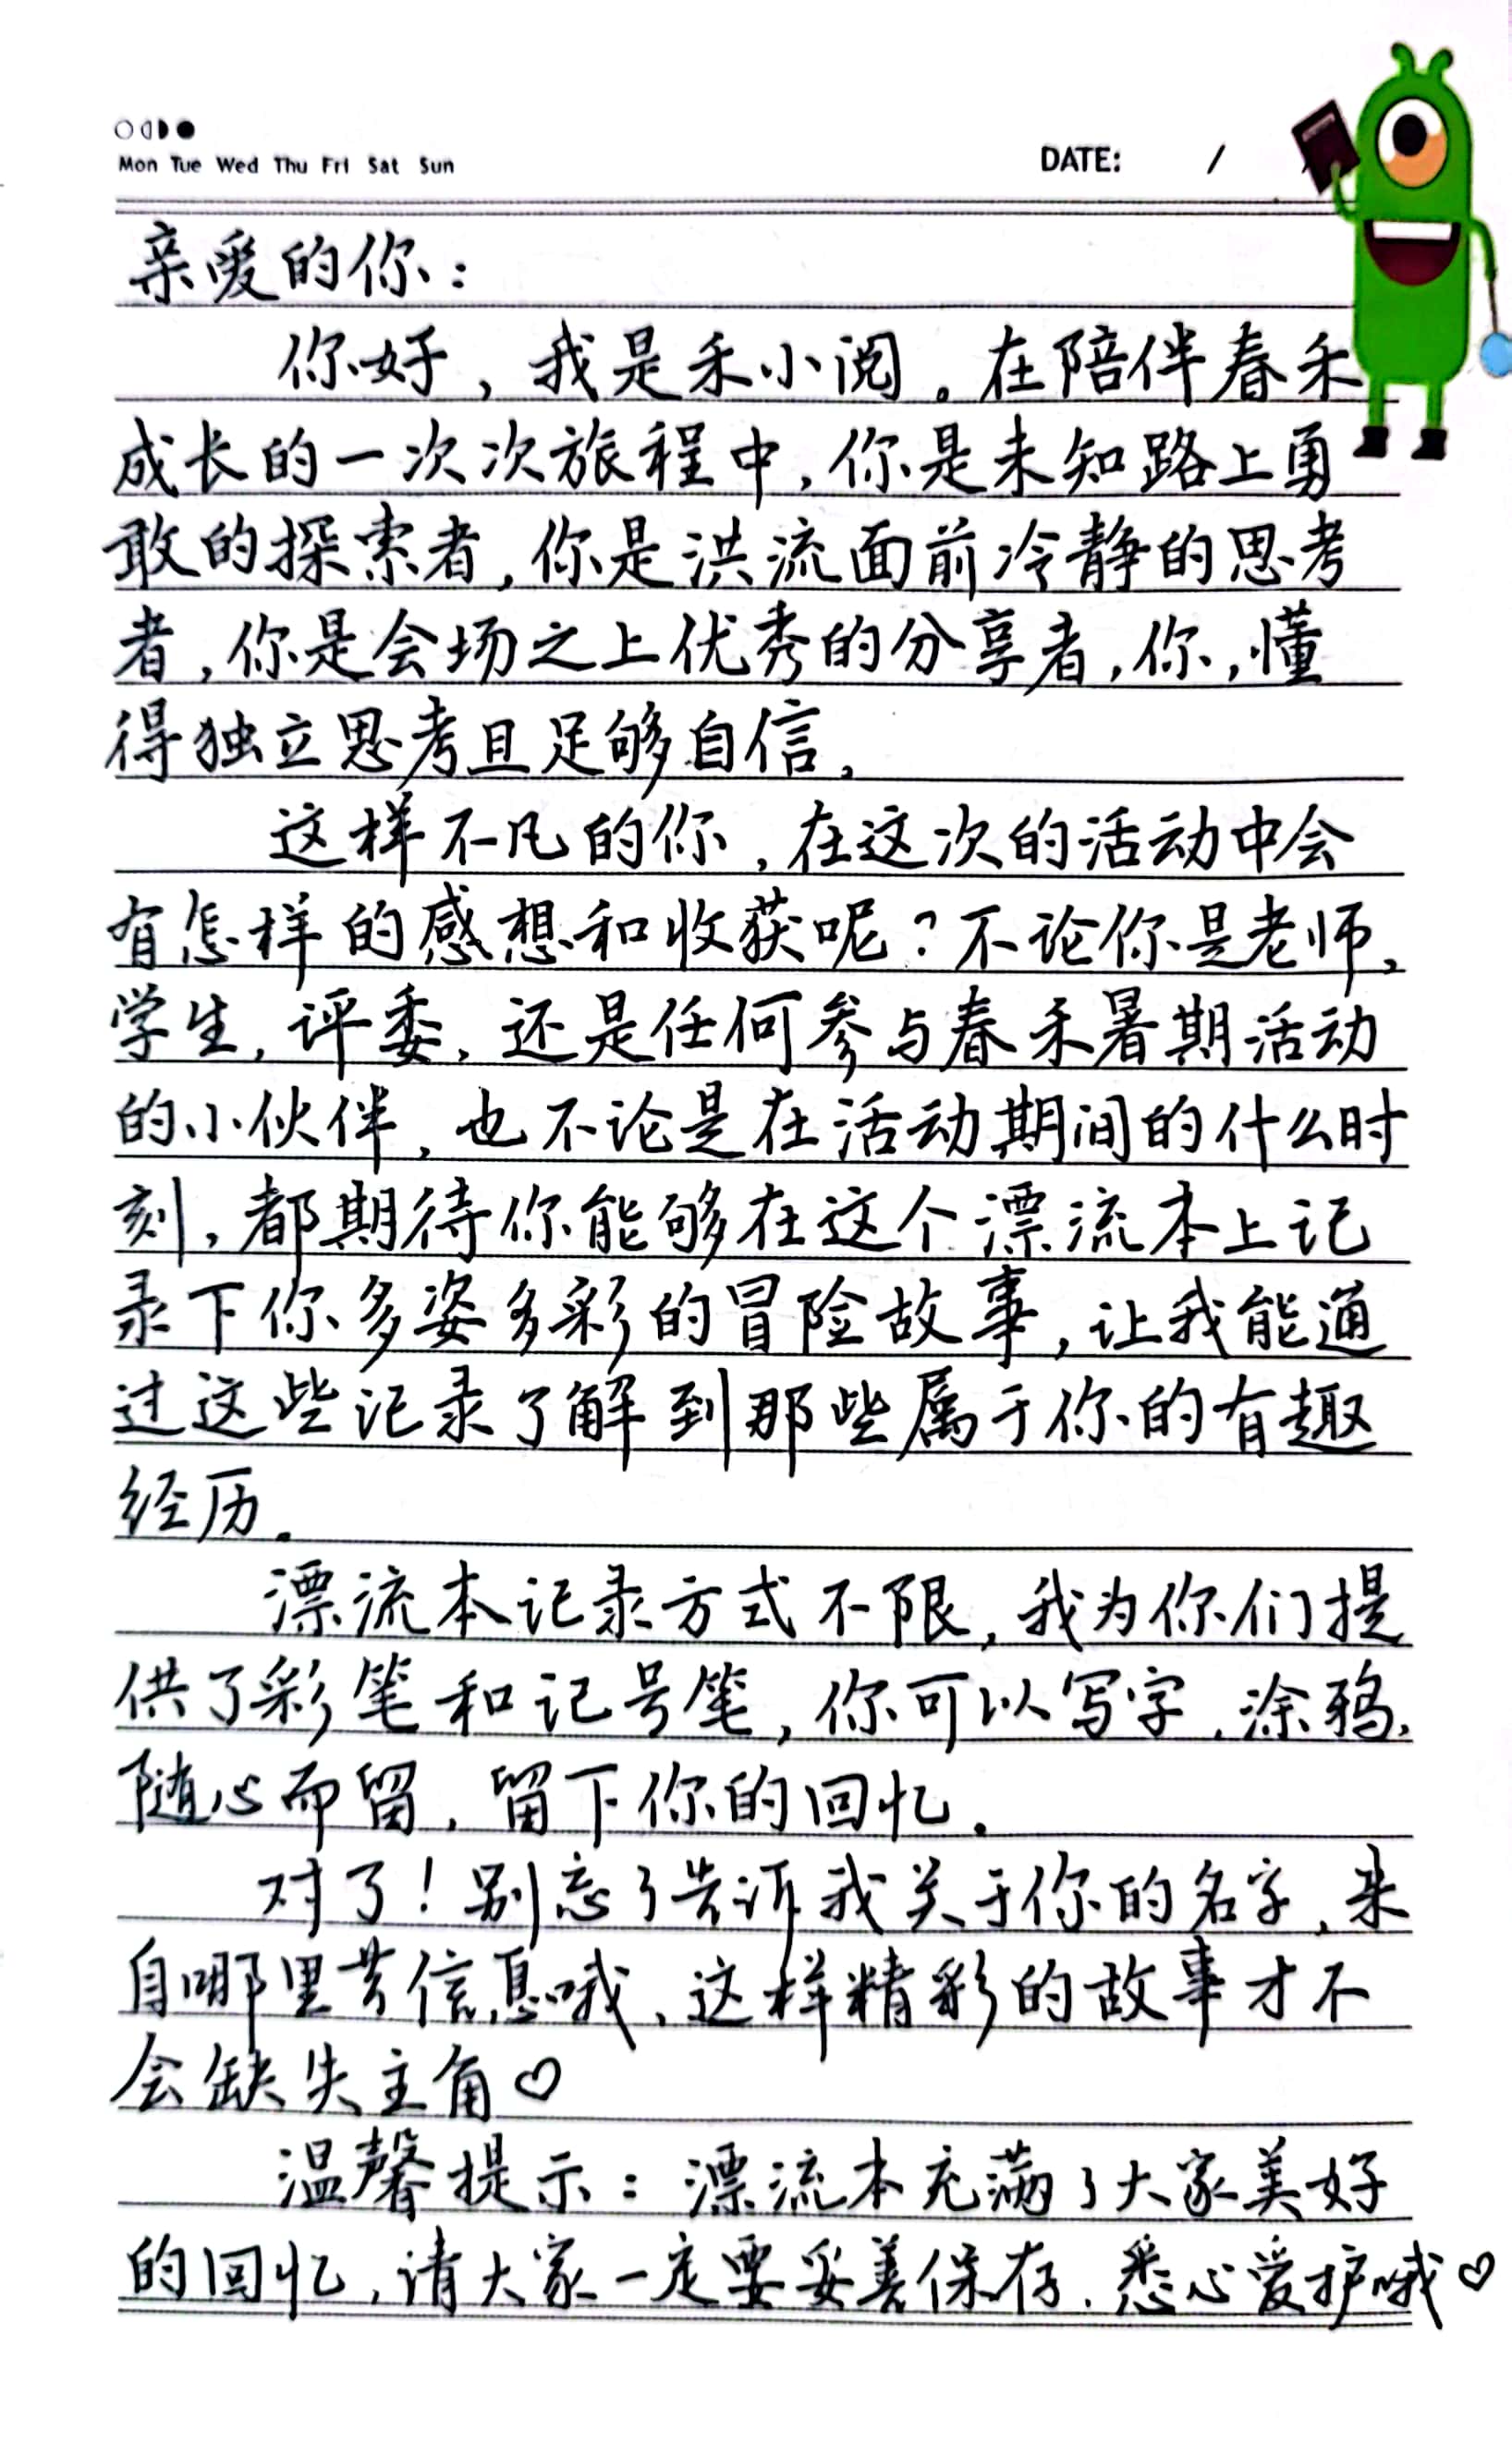 Mon Tue Wed Thu Fri Sat Sun
DATE: /
亲爱的你：
你好，我是禾小阅。在陪伴春禾
成长的一次次旅程中，你是未知路上勇
敢的探索者，你是洪流面前冷静的思考
者，你是会场之上优秀的分享者，你，懂
得独立思考且足够自信，
这样不凡的你，在这次的活动中会
有怎样的感想和收获呢？不论你是老师、
学生，评委，还是任何参与春禾暑期活动
的小伙伴，也不论是在活动期间的什么时
刻，都期待你能够在这个漂流本上记
录下你多姿多彩的冒险故事，让我能通
过这些记录了解到那些属于你的有趣
经历。
漂流本记录方式不限，我为你们提
供了彩笔和记号笔，你可以写字，涂鸦，
随心而留，留下你的回忆。
对了！别忘了告诉我关于你的名字、来
自哪里等信息哦，这样精彩的故事才不
会缺失主角♡
温馨提示：漂流本充满了大家美好
的回忆，请大家一定要妥善保存，悉心爱护哦♡